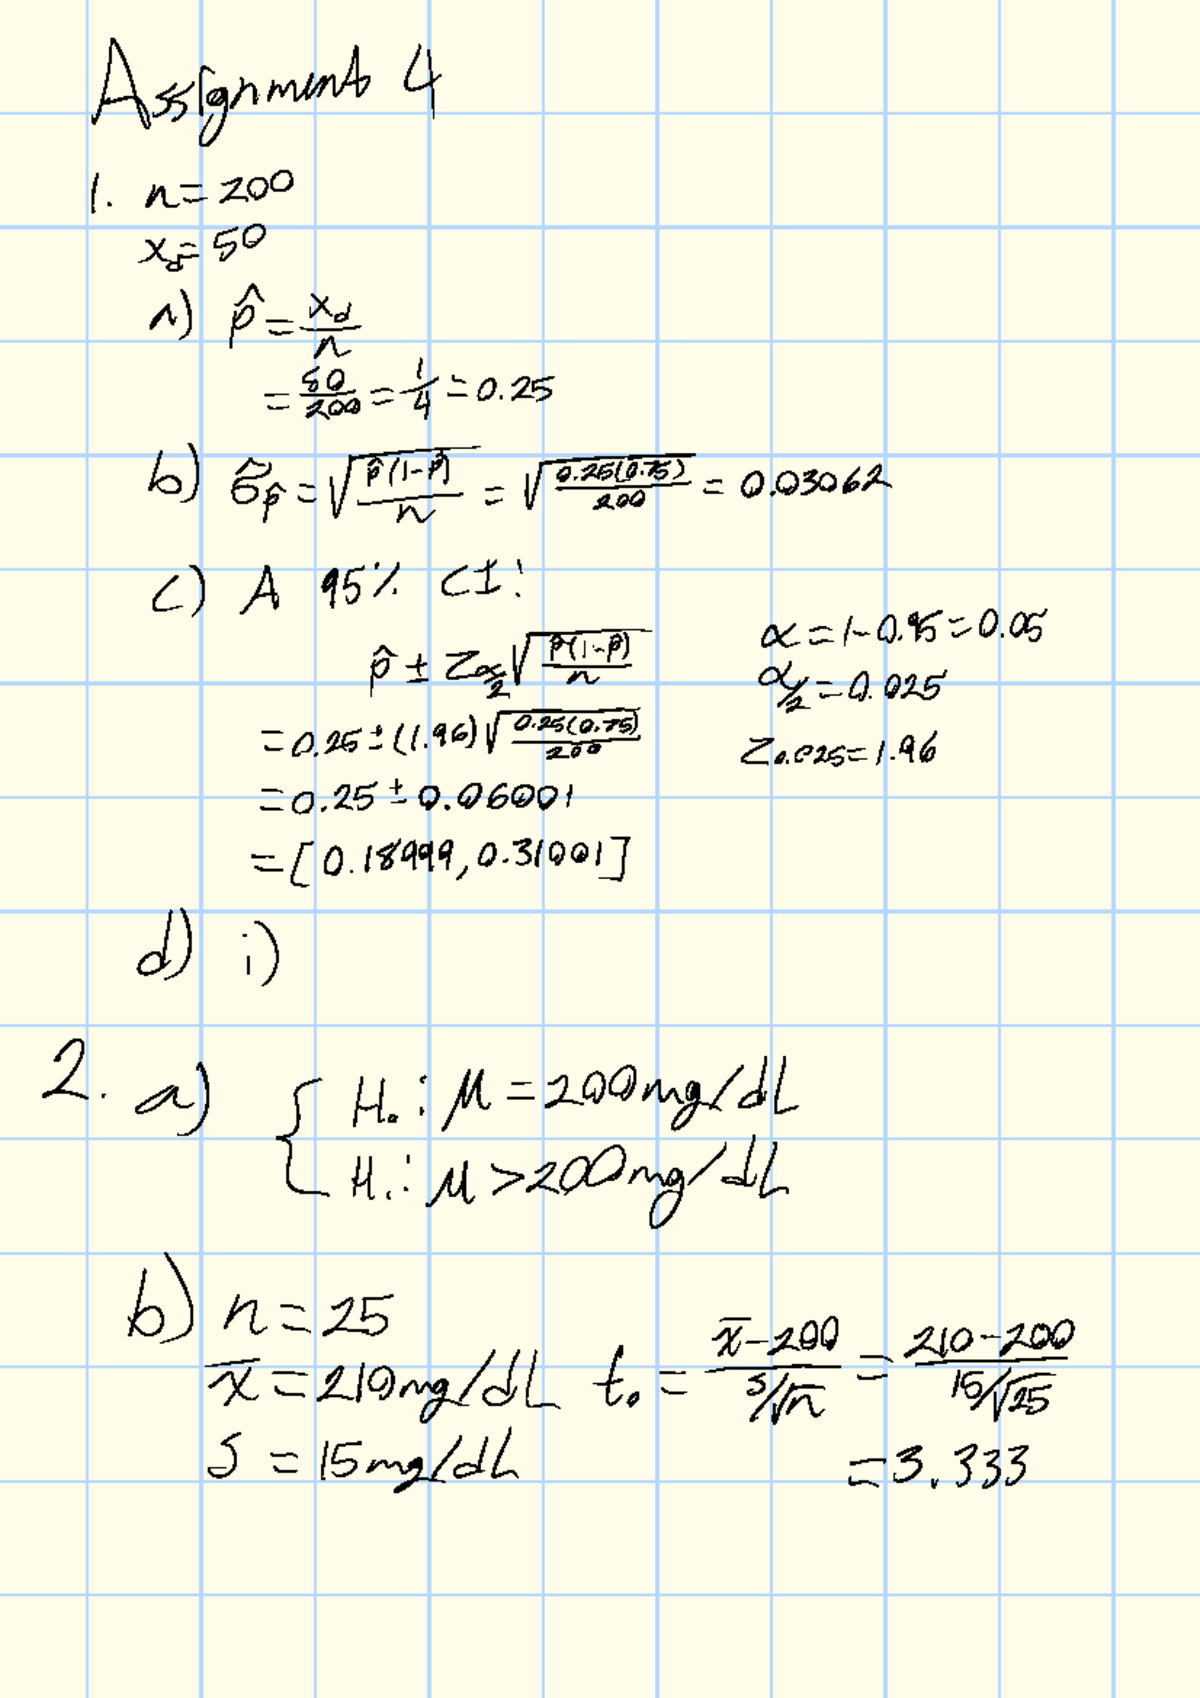 Assignment 4
1. n = 200
x_d = 50
a) p̂ = x_d/n
= 50/200 = 1/4 = 0.25
b) σ̂_p̂ = √(p̂(1-p̂)/n) = √(0.25(0.75)/200) = 0.03062
c) A 95% CI:
p̂ ± Z_α/2 √(p̂(1-p̂)/n)
= 0.25 ± (1.96)√(0.25(0.75)/200)
= 0.25 ± 0.06001
= [0.18999, 0.31001]
α = 1 - 0.95 = 0.05
α/2 = 0.025
Z_0.025 = 1.96
d) i)
2. a) { H₀: μ = 200mg/dL
H₁: μ > 200mg/dL
b) n = 25
x̄ = 210mg/dL
s = 15mg/dL
t₀ = (x̄ - 200)/(s/√n) = (210 - 200)/(15/√25)
= 3.333